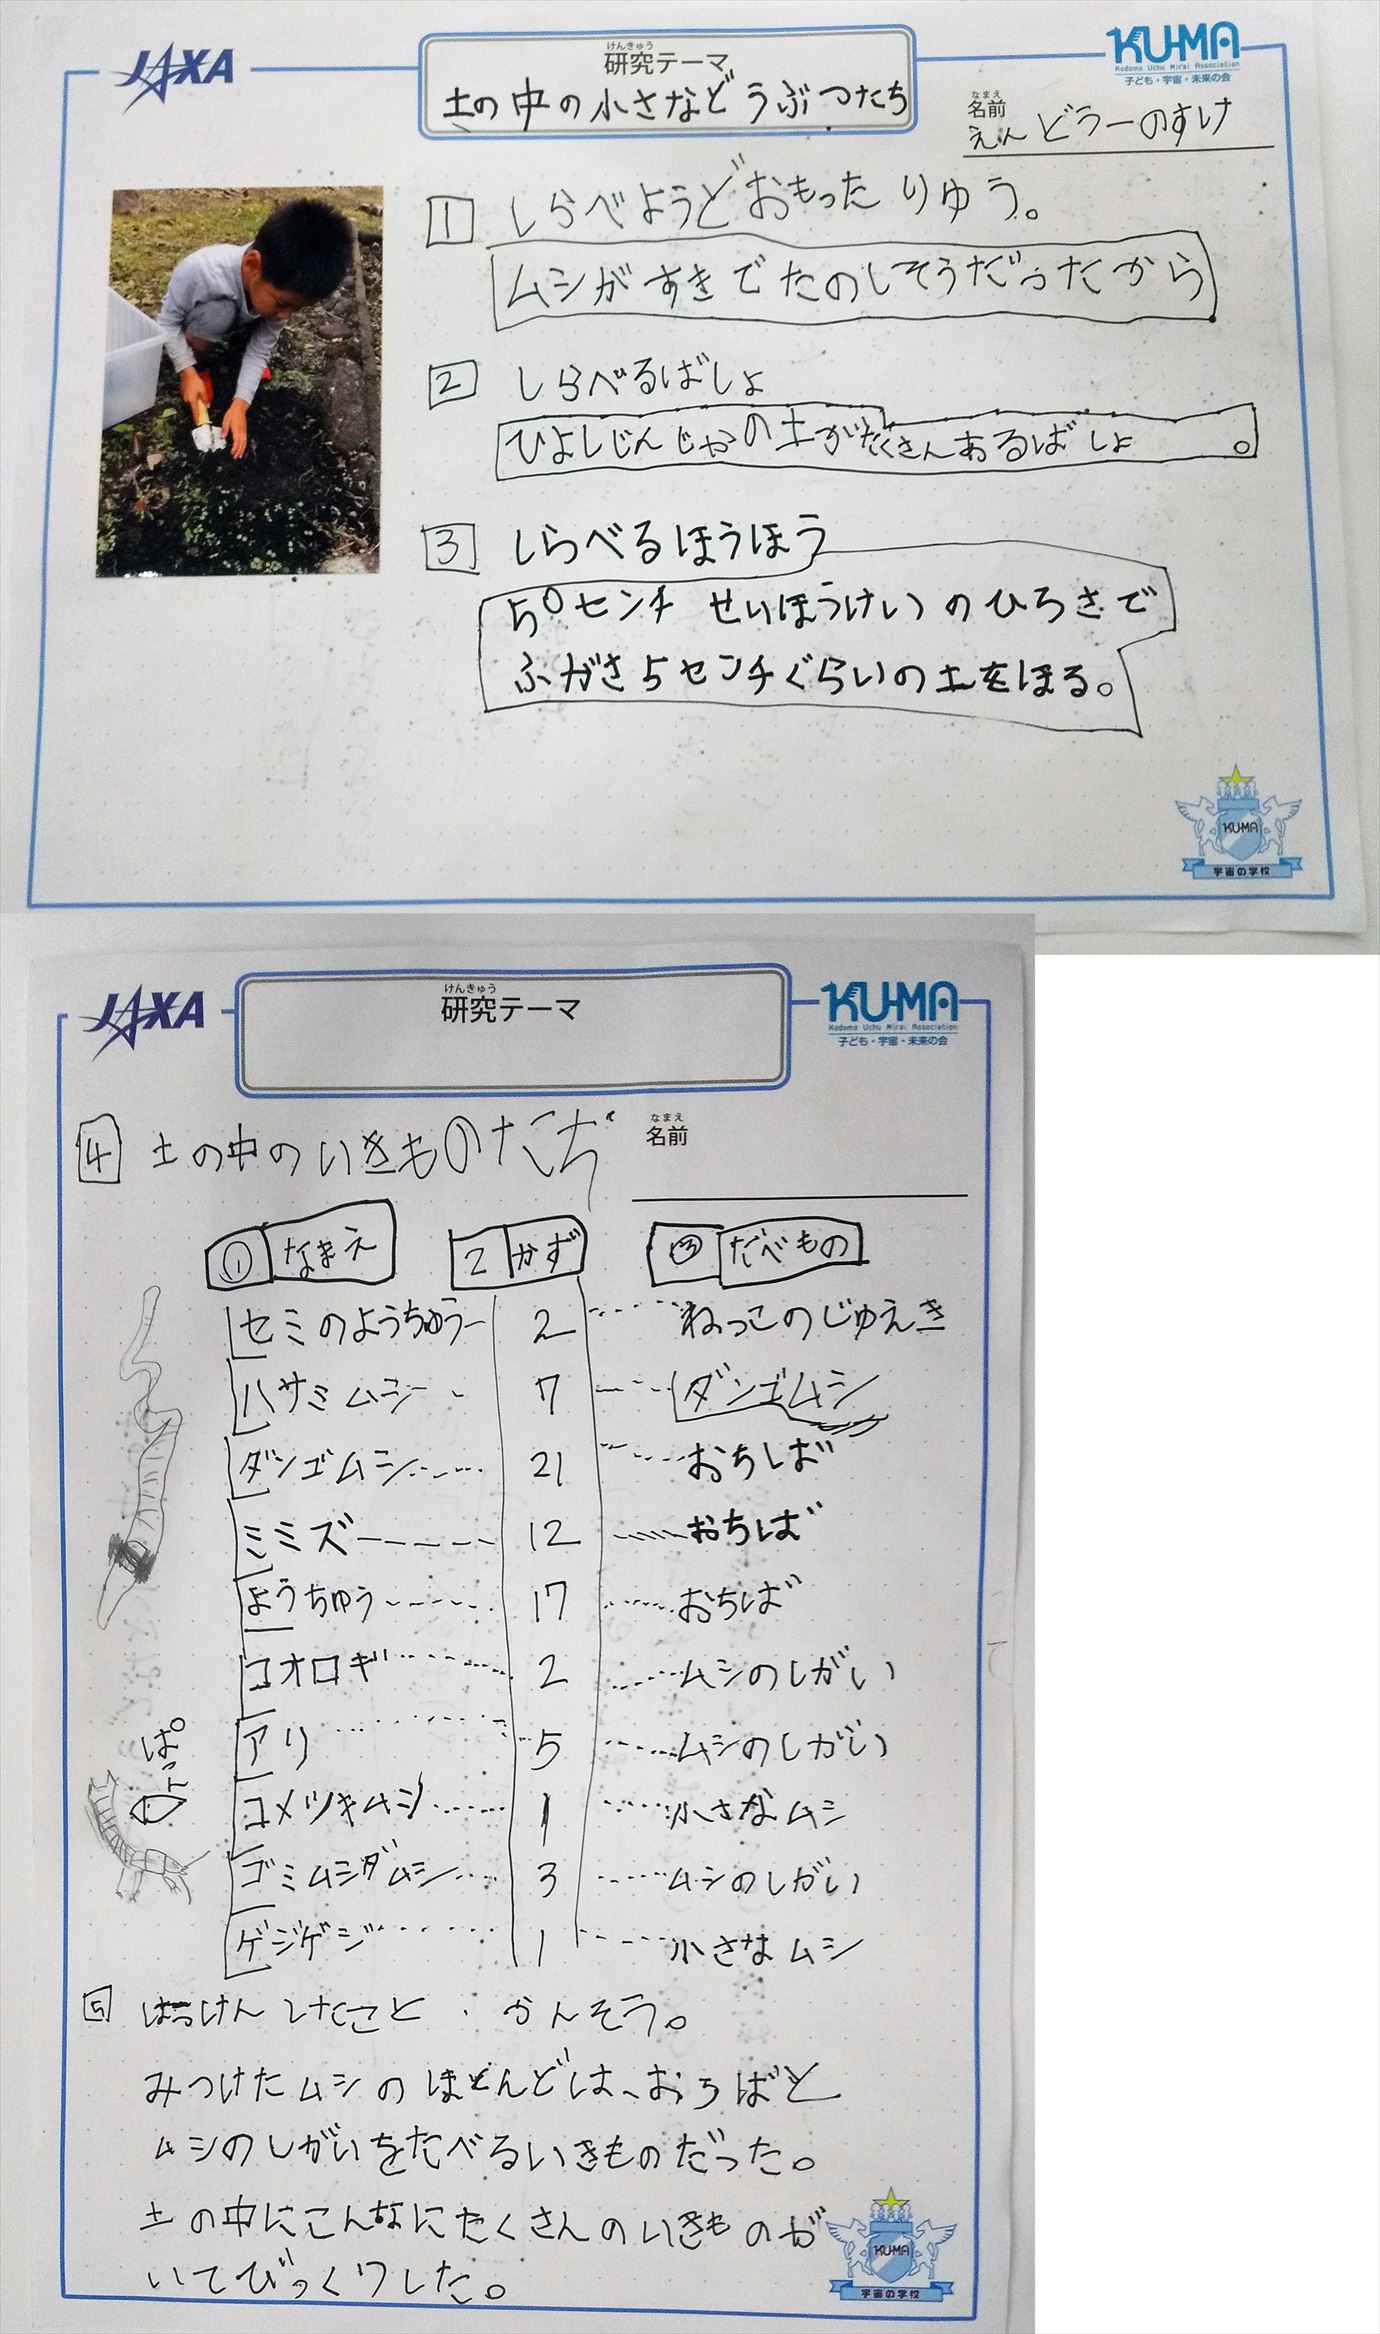 JAXA
けんきゅう
研究テーマ
土の中の小さなどうぶつたち
KU-MA
Kodomo Uchu Mirai Association
子ども・宇宙・未来の会
なまえ
名前
えんどうーのすけ
1 しらべようどおもったりゅう。
ムシがすきでたのしそうだったから
2 しらべるばしょ
ひよしじんじゃの土がたくさんあるばしょ。
3 しらべるほうほう
50センチ せいほうけいのひろさで
ふがさ5センチぐらいの土をほる。
KUMA
宇宙の学校
JAXA
けんきゅう
研究テーマ
KU-MA
Kodomo Uchu Mirai Association
子ども・宇宙・未来の会
なまえ
名前
4 土の中のいきものたち
① なまえ 2 かず ③ たべもの
セミのようちゅう 2 ねっこのじゅえき
ハサミムシ 7 ダンゴムシ
ダンゴムシ 21 おちば
ミミズ 12 おちば
ようちゅう 17 おちば
コオロギ 2 ムシのしがい
アリ 5 ムシのしがい
コメツキムシ 1 小さなムシ
ゴミムシダムシ 3 ムシのしがい
ゲジゲジ 1 小さなムシ
ぱっと
5 はっけんしたこと・かんそう。
みつけたムシのほとんどは、おちばと
ムシのしがいをたべるいきものだった。
土の中にこんなにたくさんのいきものが
いてびっくりした。
KUMA
宇宙の学校